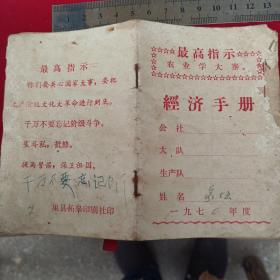 最高指示
你们要关心国家大事，要把
无产阶级文化大革命进行到底。
千万不要忘记阶级斗争。
要斗私，批修。
提高警惕，保卫祖国。
千万不要忘记
县县印刷社印
最高指示
农业学大寨。
經济手册
公社
大队
生产队
姓名
一九七 年度